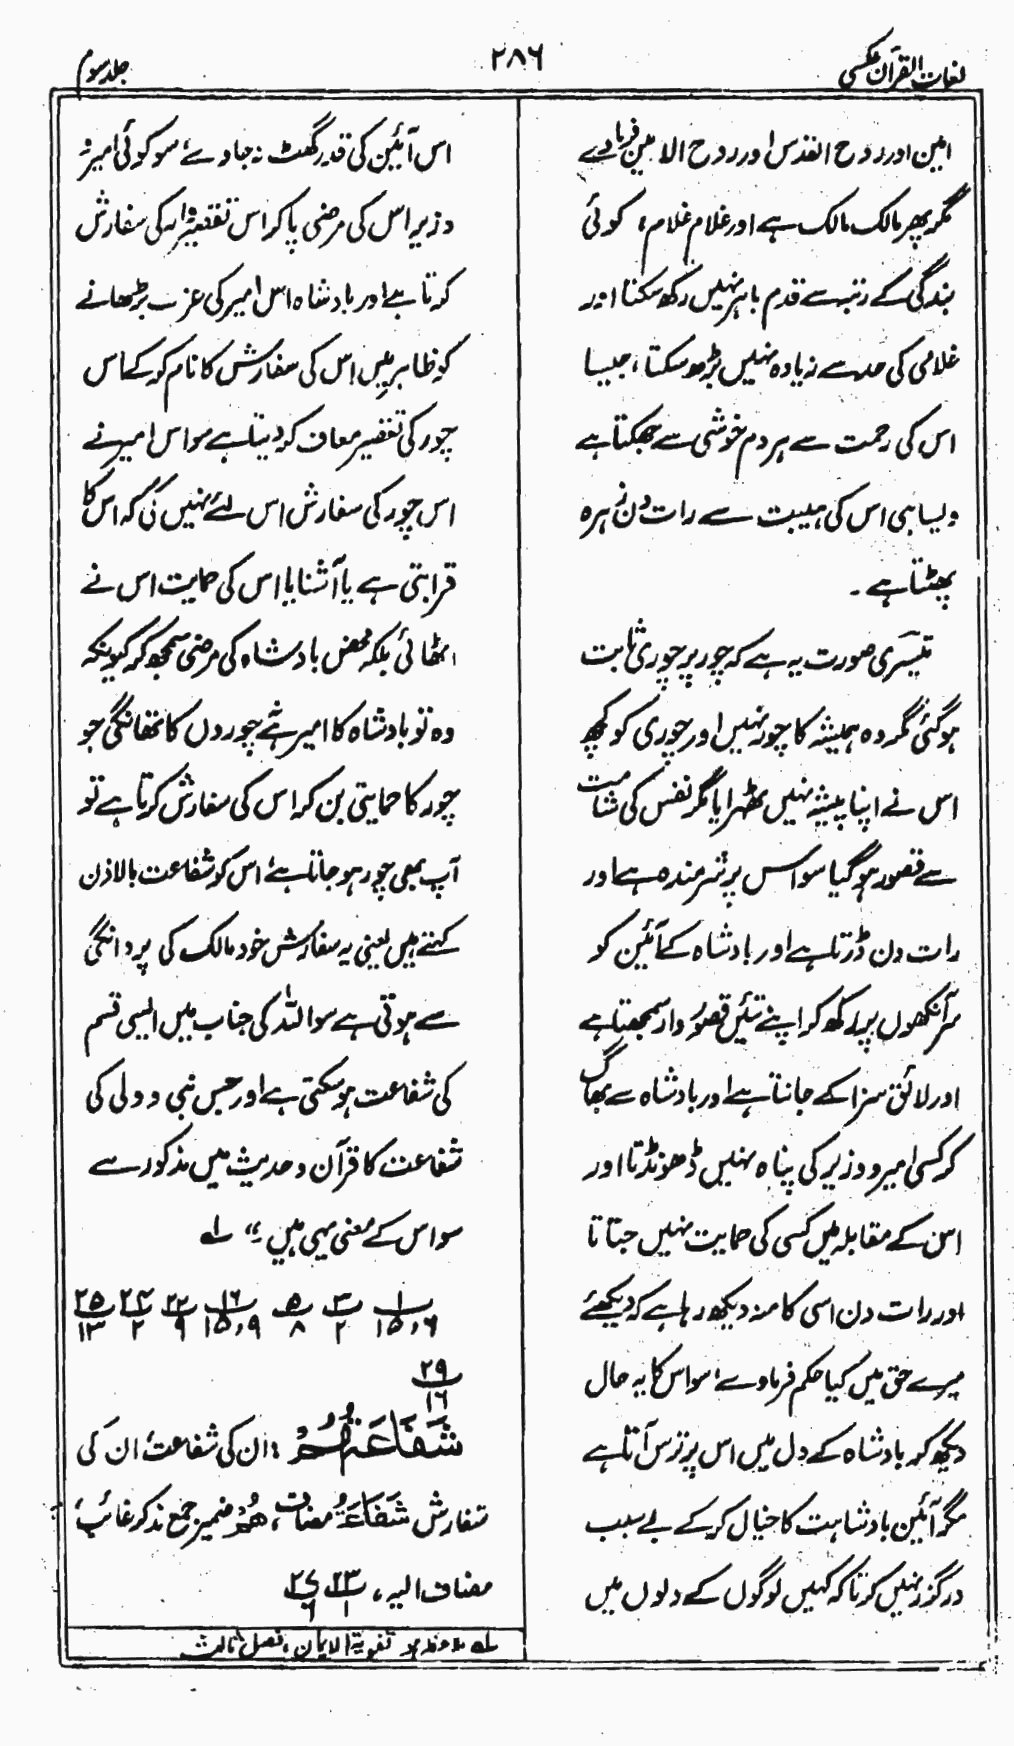 لغات القرآن عکسی
۲۸۶
جلد سوم
امین اور روح القدس اور روح الامین فرماوے
مگر پھر مالک مالک ہے اور غلام غلام، کوئی
بندگی کے رتبہ سے قدم باہر نہیں رکھ سکتا اور
غلامی کی حد سے زیادہ نہیں بڑھ سکتا، جیسا
اس کی رحمت سے ہر دم خوشی سے جھکتا ہے
ویسا ہی اس کی ہیبت سے رات دن زہرہ
پھٹتا ہے۔
تیسری صورت یہ ہے کہ چور پر چوری ثابت
ہوگئی مگر وہ ہمیشہ کا چور نہیں اور چوری کو کچھ
اس نے اپنا پیشہ نہیں ٹھہرایا مگر نفس کی شامت
سے قصور ہو گیا سو اس پر شرمندہ ہے اور
رات دن ڈرتا ہے اور بادشاہ کے آئین کو
سر آنکھوں پر رکھ کر اپنے تئیں قصور وار سمجھتا ہے
اور لائق سزا کے جانتا ہے اور بادشاہ سے بھاگ
کر کسی امیر و وزیر کی پناہ نہیں ڈھونڈتا اور
اس کے مقابلہ میں کسی کی حمایت نہیں جتاتا
اور رات دن اسی کا منہ دیکھ رہا ہے کہ دیکھئے
میرے حق میں کیا حکم فرماوے، سو اس کا یہ حال
دیکھ کر بادشاہ کے دل میں اس پر ترس آتا ہے
مگر آئین بادشاہت کا خیال کر کے بے سبب
درگزر نہیں کرتا کہ کہیں لوگوں کے دلوں میں
اس آئین کی قدر گھٹ نہ جاوے، سو کوئی امیر و
وزیر اس کی مرضی پا کر اس تقصیر وار کی سفارش
کرتا ہے اور بادشاہ اس امیر کی عزت بڑھانے
کو ظاہر میں اس کی سفارش کا نام کر کے اس
چور کی تقصیر معاف کر دیتا ہے سو اس امیر نے
اس چور کی سفارش اس لئے نہیں کی کہ اس کا
قرابتی ہے یا آشنا یا اس کی حمایت اس نے
اٹھائی بلکہ محض بادشاہ کی مرضی سمجھ کر کیونکہ
وہ تو بادشاہ کا امیر ہے نہ چوروں کا تھانگی جو
چور کا حمایتی بن کر اس کی سفارش کرتا ہے تو
آپ بھی چور ہو جاتا ہے، اس کو شفاعت بالاذن
کہتے ہیں یعنی یہ سفارش خود مالک کی پروانگی
سے ہوتی ہے سو اللہ کی جناب میں ایسی قسم
کی شفاعت ہو سکتی ہے اور جس نبی و ولی کی
شفاعت کا قرآن و حدیث میں مذکور ہے
سو اس کے معنی یہی ہیں۔" لہ
۱/۱۵،۶ ۳/۲ ۵/۸ ۱۶/۱۵،۹ ۲۲/۹ ۲۴/۲ ۲۵/۱۳
۲۹/۱۶
شَفَاعَتُهُمْ : ان کی شفاعت، ان کی
سفارش شَفَاعَةُ مضاف، هُمْ ضمیر جمع مذکر غائب،
مضاف الیہ، ۲۳/۱ ۲۷/۶
لہ ملاحظہ ہو تقویۃ الایمان، فصل ثالث